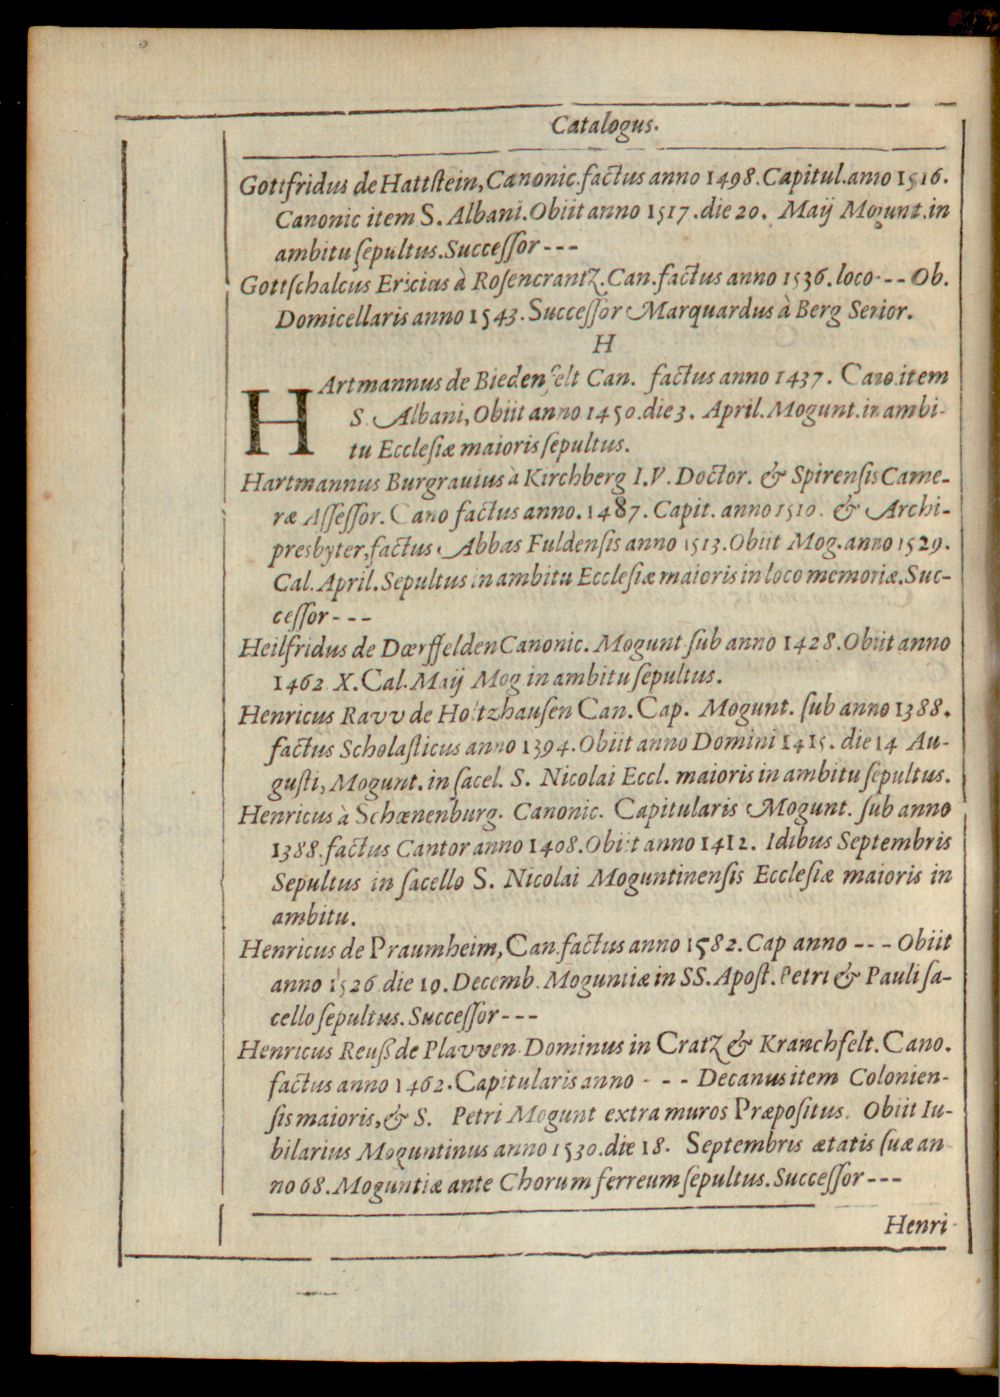 Catalogus.
Gottfridus de Hattſtein, Canonic. factus anno 1498. Capitul. anno 1516.
Canonic item S. Albani. Obiit anno 1517. die 20. Maÿ Mogunt. in
ambitu ſepultus. Succeſſor - - -
Gottſchalcus Ericius à Roſencrantz. Can. factus anno 1536. loco - - - Ob.
Domicellaris anno 1543. Succeſſor Marquardus à Berg Senior.
H
HArtmannus de Biedenfelt Can. factus anno 1437. Cano. item
S. Albani, Obiit anno 1450. die 3. April. Mogunt. in ambi-
tu Eccleſiæ maioris ſepultus.
Hartmannus Burgrauius à Kirchberg I. V. Doctor. & Spirenſis Came-
ræ Aſſeſſor. Cano factus anno. 1487. Capit. anno 1510. & Archi-
presbyter, factus Abbas Fuldenſis anno 1513. Obiit Mog. anno 1529.
Cal. April. Sepultus in ambitu Eccleſiæ maioris in loco memoriæ. Suc-
ceſſor - - -
Heilfridus de Dœrffelden Canonic. Mogunt. ſub anno 1428. Obiit anno
1462 X. Cal. Maÿ Mog in ambitu ſepultus.
Henricus Ravv de Holtzhauſen Can. Cap. Mogunt. ſub anno 1388.
factus Scholaſticus anno 1394. Obiit anno Domini 1415. die 14 Au-
guſti, Mogunt. in ſacel. S. Nicolai Eccl. maioris in ambitu ſepultus.
Henricus à Schœnenburg. Canonic. Capitularis Mogunt. ſub anno
1388. factus Cantor anno 1408. Obiit anno 1412. Idibus Septembris
Sepultus in ſacello S. Nicolai Moguntinenſis Eccleſiæ maioris in
ambitu.
Henricus de Praumheim, Can. factus anno 1582. Cap anno - - - Obiit
anno 1526 die 19. Decemb. Moguntiæ in SS. Apoſt. Petri & Pauli ſa-
cello ſepultus. Succeſſor - - -
Henricus Reuß de Plavven Dominus in Cratz & Kranchfelt. Cano.
factus anno 1462. Capitularis anno - - - Decanus item Colonien-
ſis maioris, & S. Petri Mogunt extra muros Præpoſitus. Obiit Iu-
bilarius Moguntinus anno 1530. die 18. Septembris ætatis ſuæ an-
no 68. Moguntiæ ante Chorum ferreum ſepultus. Succeſſor - - -
Henri-